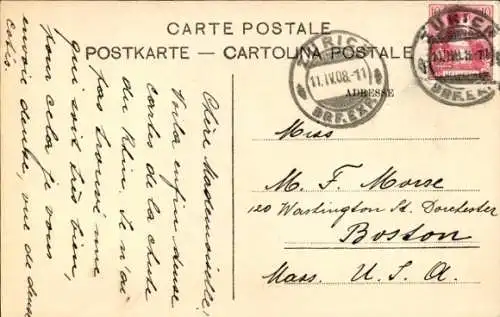 CARTE POSTALE
POSTKARTE — CARTOLINA POSTALE
ADRESSE
ZÜRICH
11.IV.08.-11
BRF.EXP.
ZÜRICH
11.IV.08.-11
BRF.EXP.
10 10
Miss
M. F. Morse
120 Washington St. Dorchester
Boston
Mass. U. S. A.
Chère Mademoiselle!
Voilà enfin deux
cartes de la chute
du Rhin, Je n'ai
pas trouvé une
qui soit très bien,
pour cela je vous
envoie deux, vue de deux
Cotés.